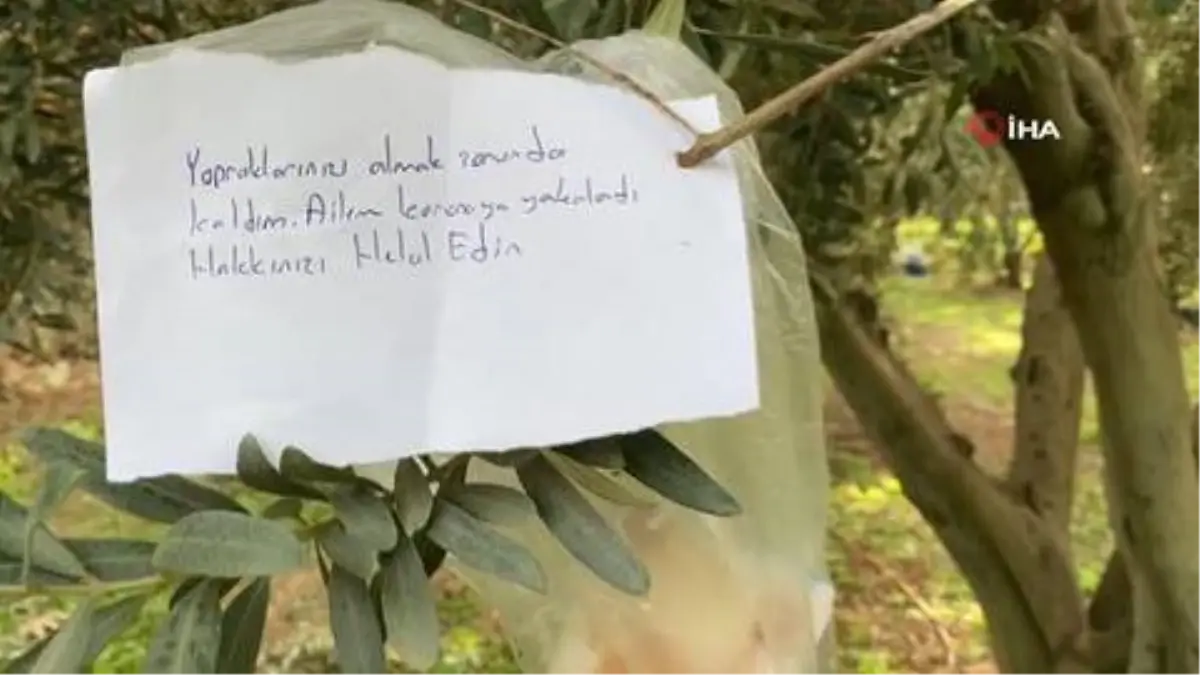 Yapraklarınızı almak zorunda
kaldım. Ailem koronaya yakalandı
Hakkınızı Helal Edin
İHA